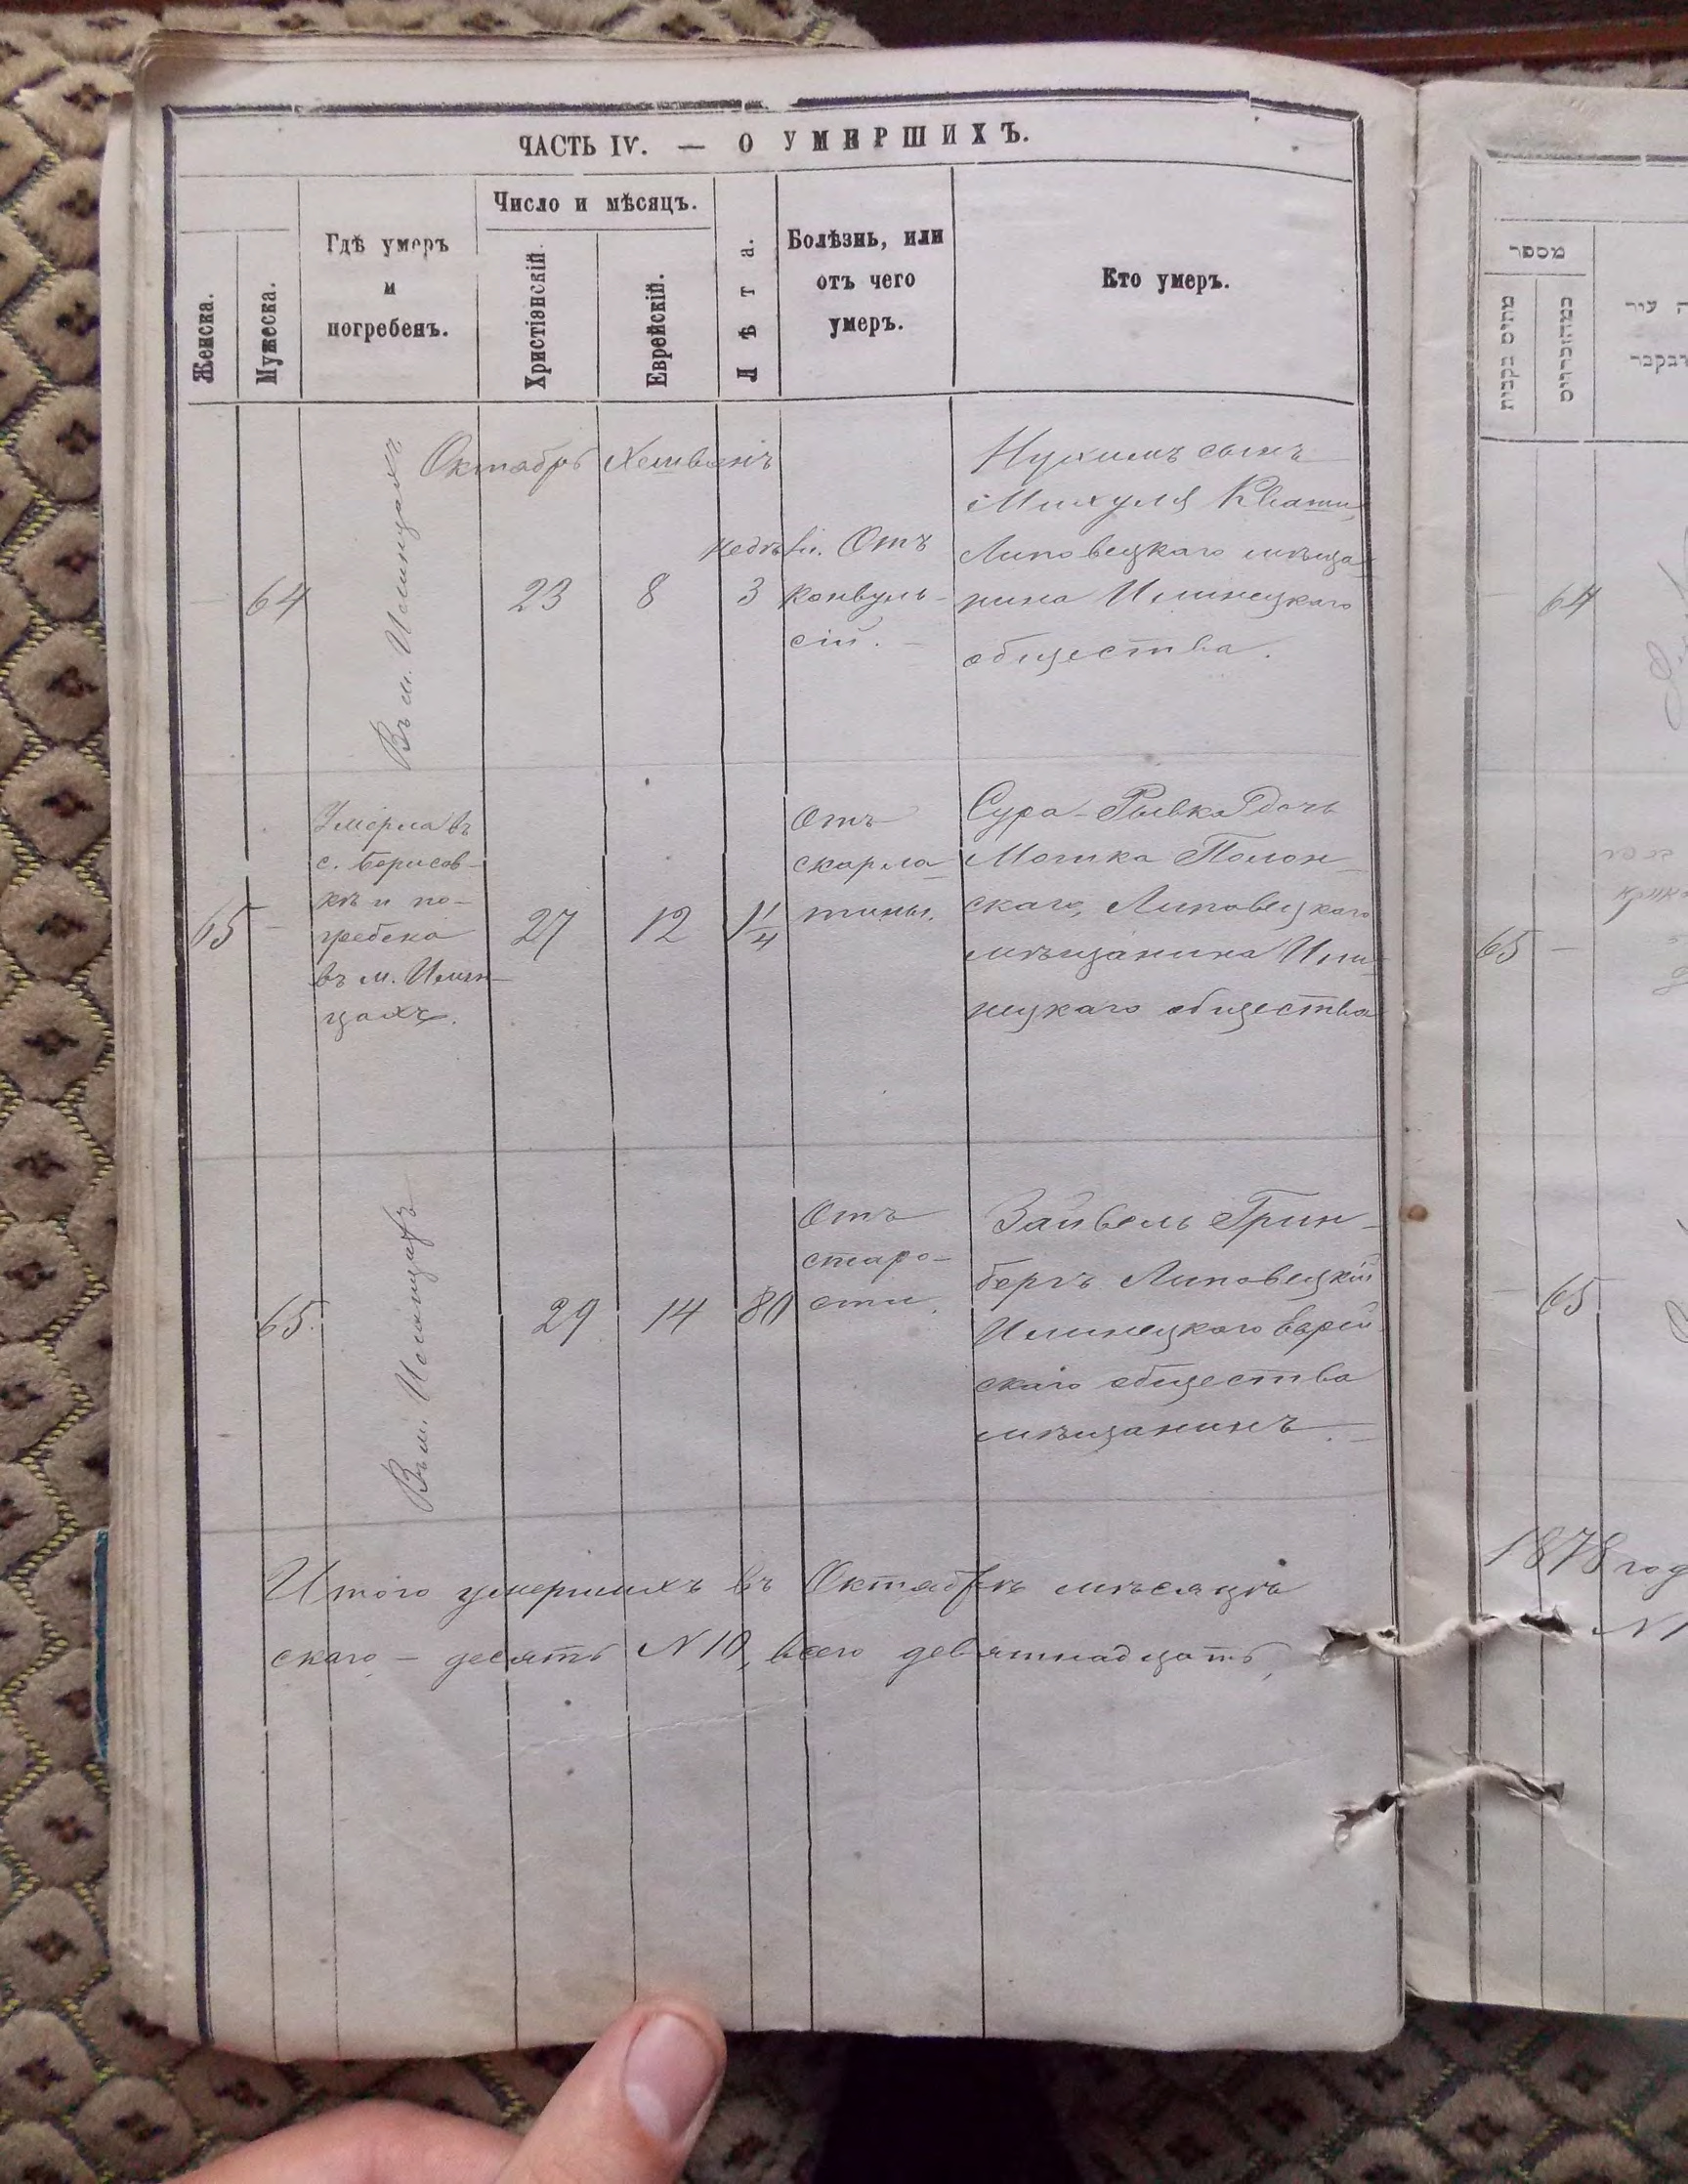 ЧАСТЬ IV. — О УМЕРШИХЪ.
Женска.
Мужеска.
Гдѣ умеръ
и
погребенъ.
Число и мѣсяцъ.
Христіанскій.
Еврейскій.
Лѣта.
Болѣзнь, или
отъ чего
умеръ.
Кто умеръ.
Октябрь Хешванъ
— 64
Въ м. Илинцахъ
23
8
недѣли.
3
Отъ
конвуль-
сій. —
Нухимъ сынъ
Липовецкаго мѣща-
нина Илинецкаго
общества.
65 —
Умерла въ
с. Борисов-
кѣ и по-
гребена
въ м. Илин-
цахъ.
27
12
1 1/4
Отъ
скарла-
тины.
Сура-Рывка дочь
Мошка Полон-
скаго, Липовецкаго
мѣщанина Или-
нецкаго общества
65.
Въ м. Илинцахъ
29
14
80
Отъ
старо-
сти.
Зайвель Грин-
бергъ Липовецкій
Илинецкаго еврей-
скаго общества
мѣщанинъ. —
Итого умершихъ въ Октябрѣ мѣсяцѣ
скаго — десять N 10, всего девятнадцать,
מספר
64
65 —
65
1878 год
N 1